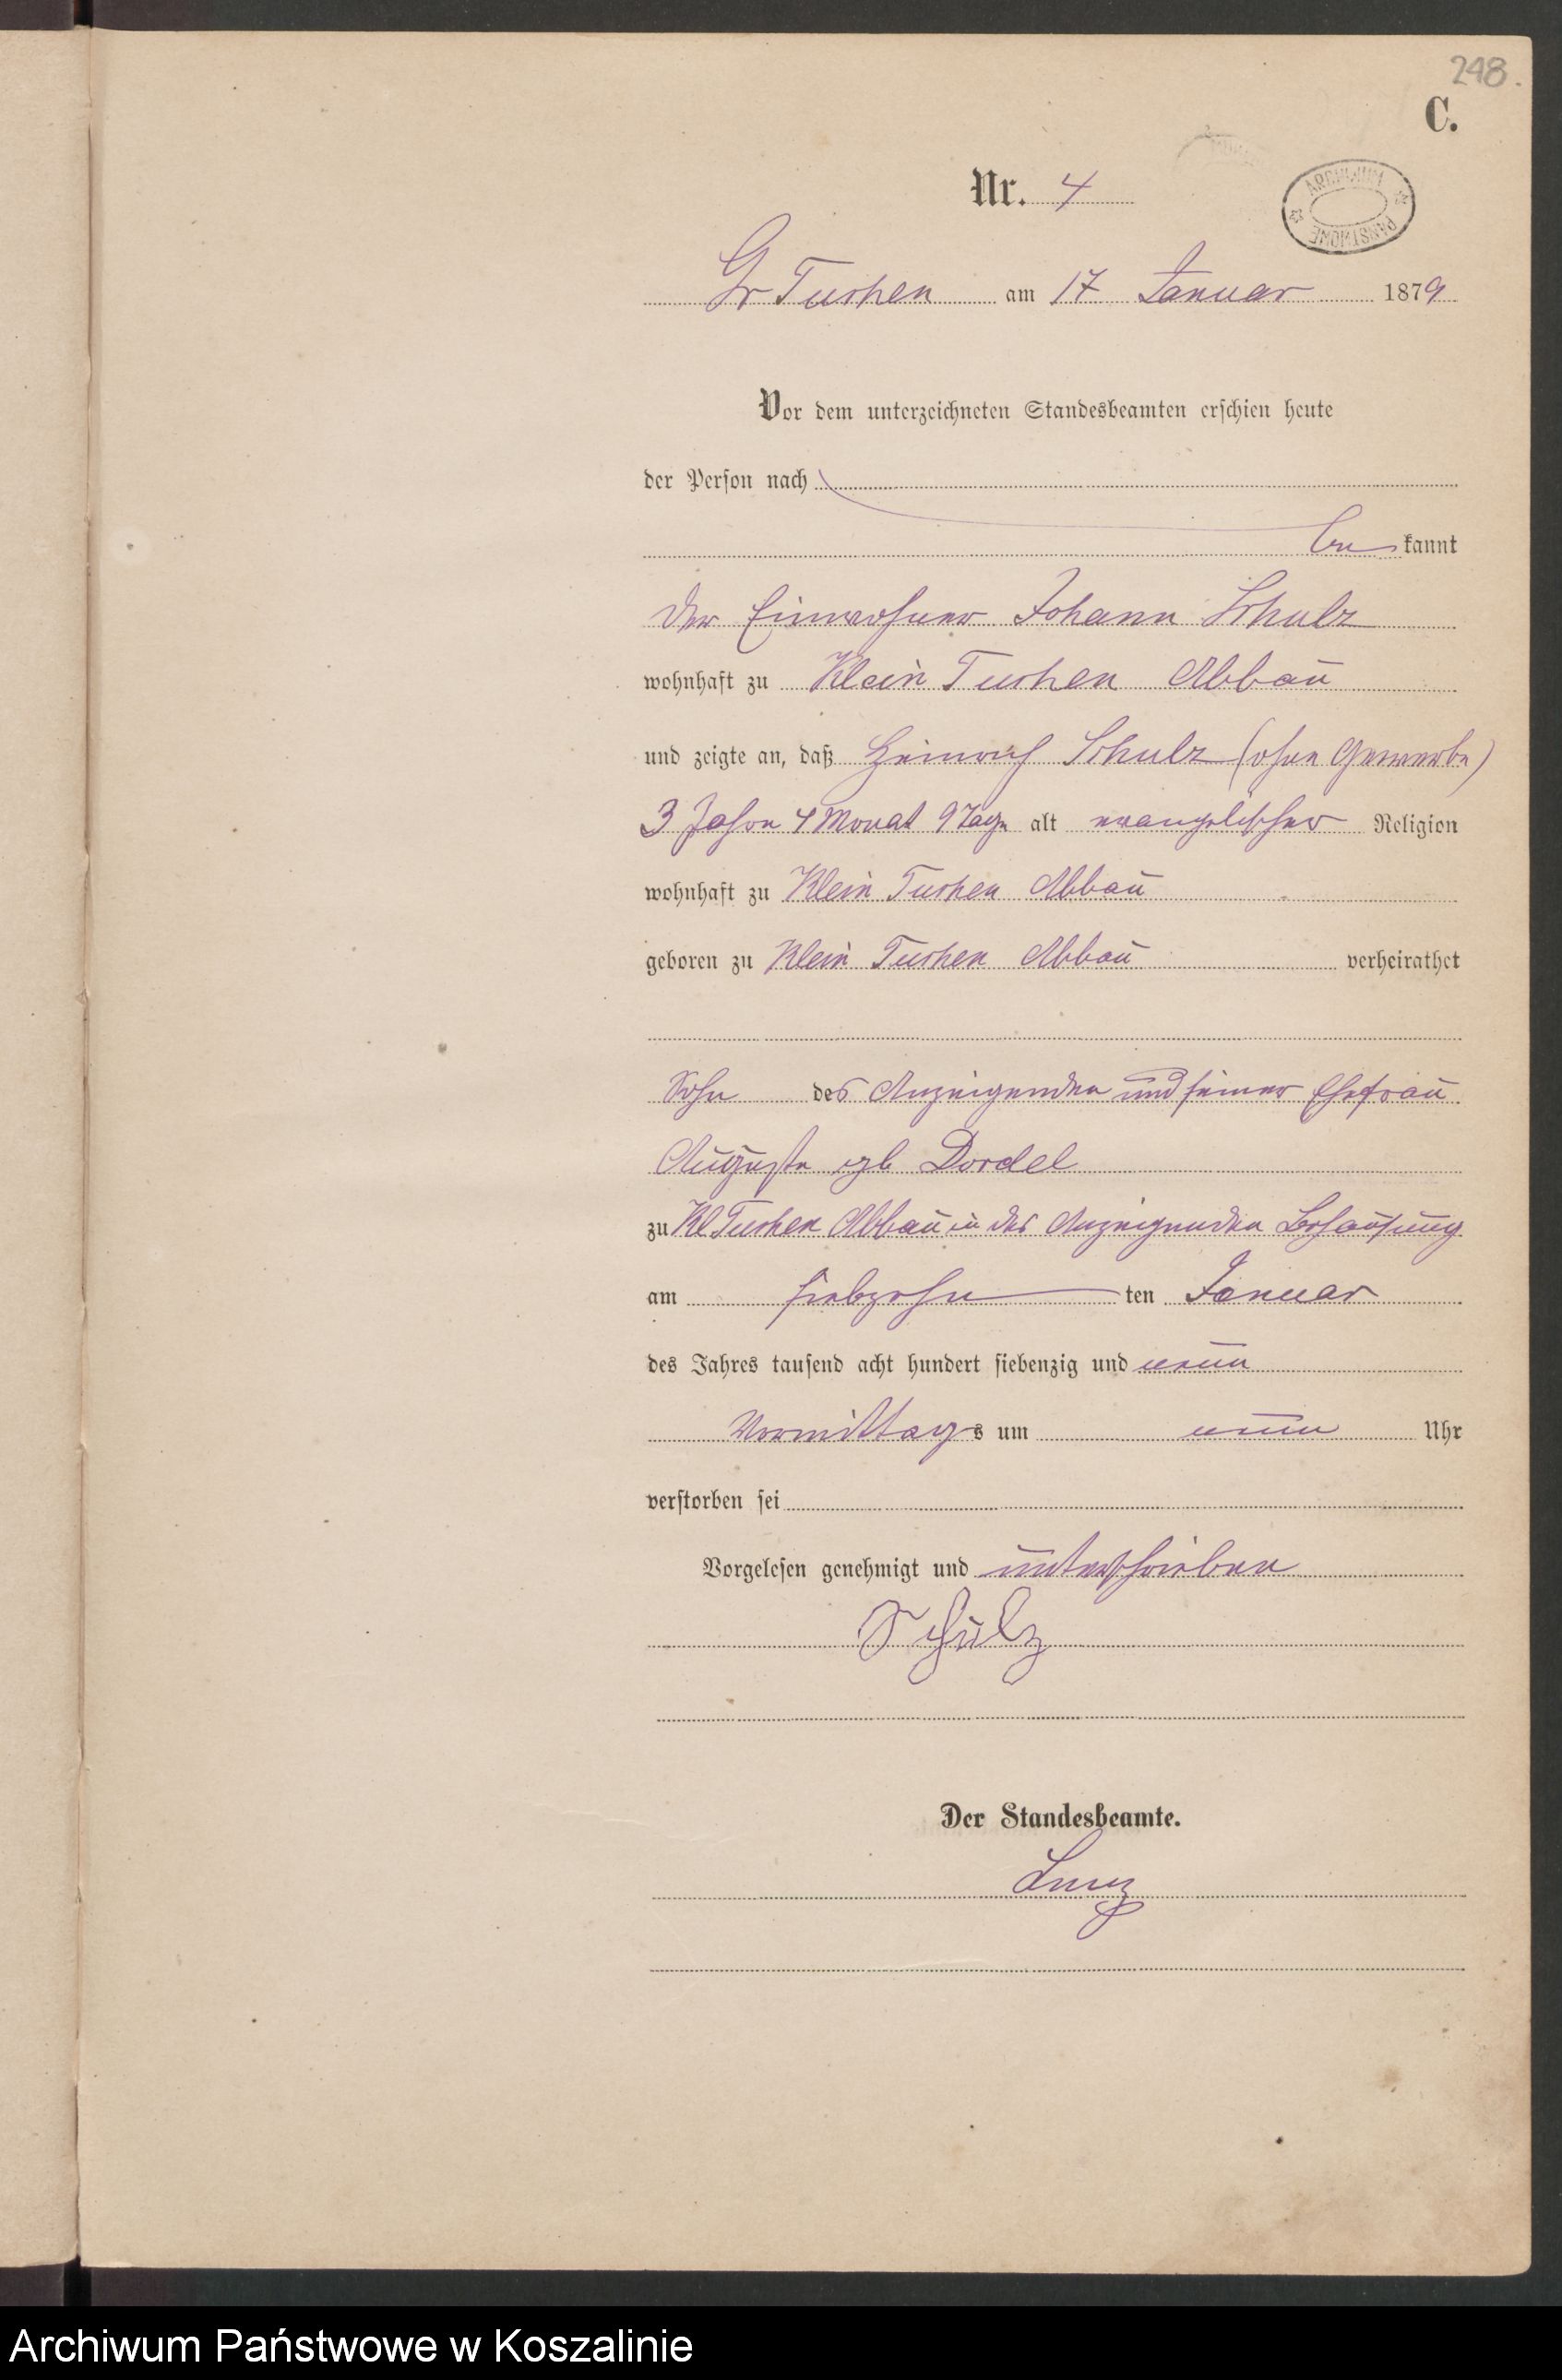 248.
C.
Nr. 4
ARCHIWUM PAŃSTWOWE
Gr Tuchen am 17 Januar 1879
Vor dem unterzeichneten Standesbeamten erschien heute
der Person nach
be kannt
der Einwohner Johann Schulz
wohnhaft zu Klein Tuchen Abbau
und zeigte an, daß Heinrich Schulz (ohne Gewerbe)
3 Jahre 4 Monat 9 Tage alt evangelischer Religion
wohnhaft zu Klein Tuchen Abbau
geboren zu Klein Tuchen Abbau verheirathet
Sohn des Anzeigenden und seiner Ehefrau
Auguste geb Dordel
zu Kl Tuchen Abbau in des Anzeigenden Behausung
am siebzehn ten Januar
des Jahres tausend acht hundert siebenzig und neun
Vormittags um neun Uhr
verstorben sei
Vorgelesen genehmigt und unterschrieben
Schulz
Der Standesbeamte.
Archiwum Państwowe w Koszalinie